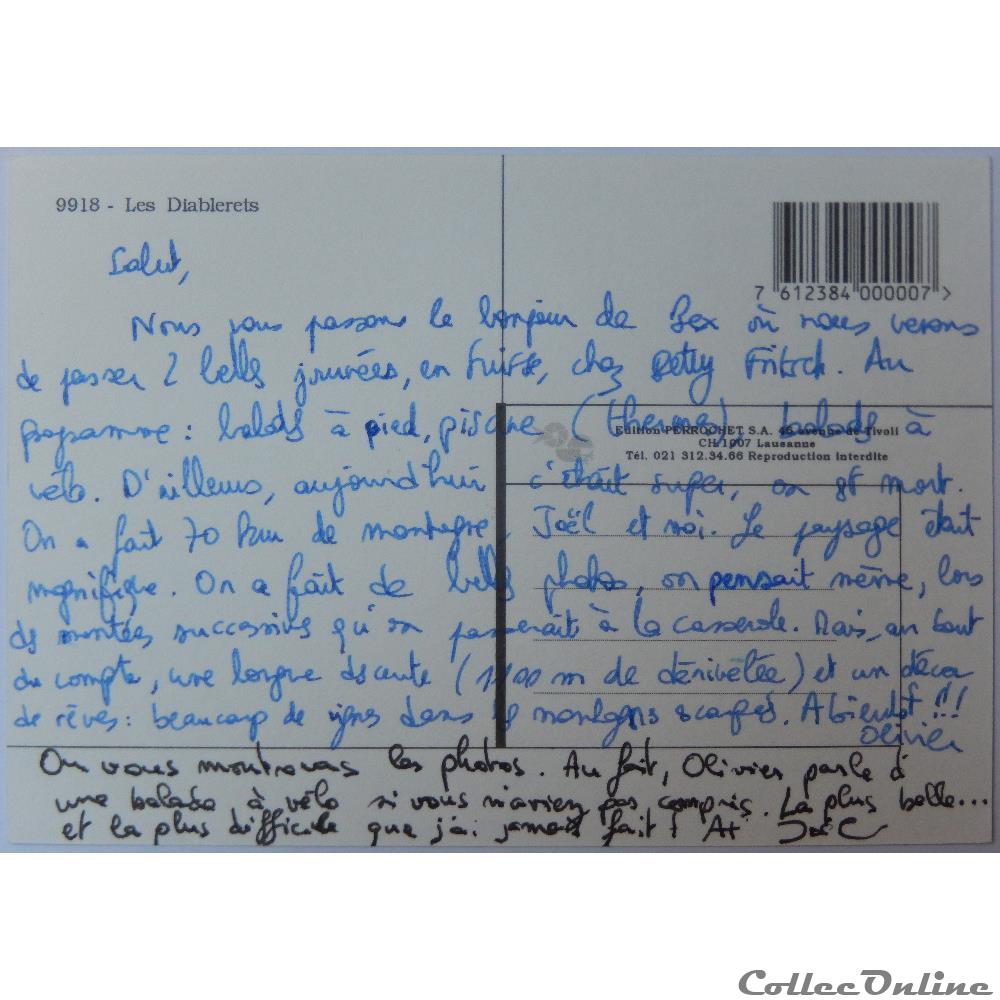 9918 - Les Diablerets
7 612384 000007 >
Salut,
Nous vous passons le bonjour de Bex où nous venons
de passer 2 belles journées, en Suisse, chez Betty Fritsch. Au
programme : balades à pied, piscine (therme), balades à
Edition PERROCHET S.A. 46 avenue de Tivoli
CH 1007 Lausanne
Tél. 021 312.34.66 Reproduction interdite
vélo. D'ailleurs, aujourd'hui c'était super, on est mort.
On a fait 70 km de montagne, Joël et moi. Le paysage était
magnifique. On a fait de belles photos, on pensait même, lors
des montées successives qu'on passerait à la casserole. Mais, au bout
du compte, une longue descente (1100 m de dénivelée) et un décor
de rêves : beaucoup de vignes dans les montagnes escarpées. A bientôt !!!
Olivier
On vous montrera les photos. Au fait, Olivier parle d'
une balade à vélo si vous n'aviez pas compris. La plus belle...
et la plus difficile que j'ai jamais fait ! A+ Joël
CollecOnline